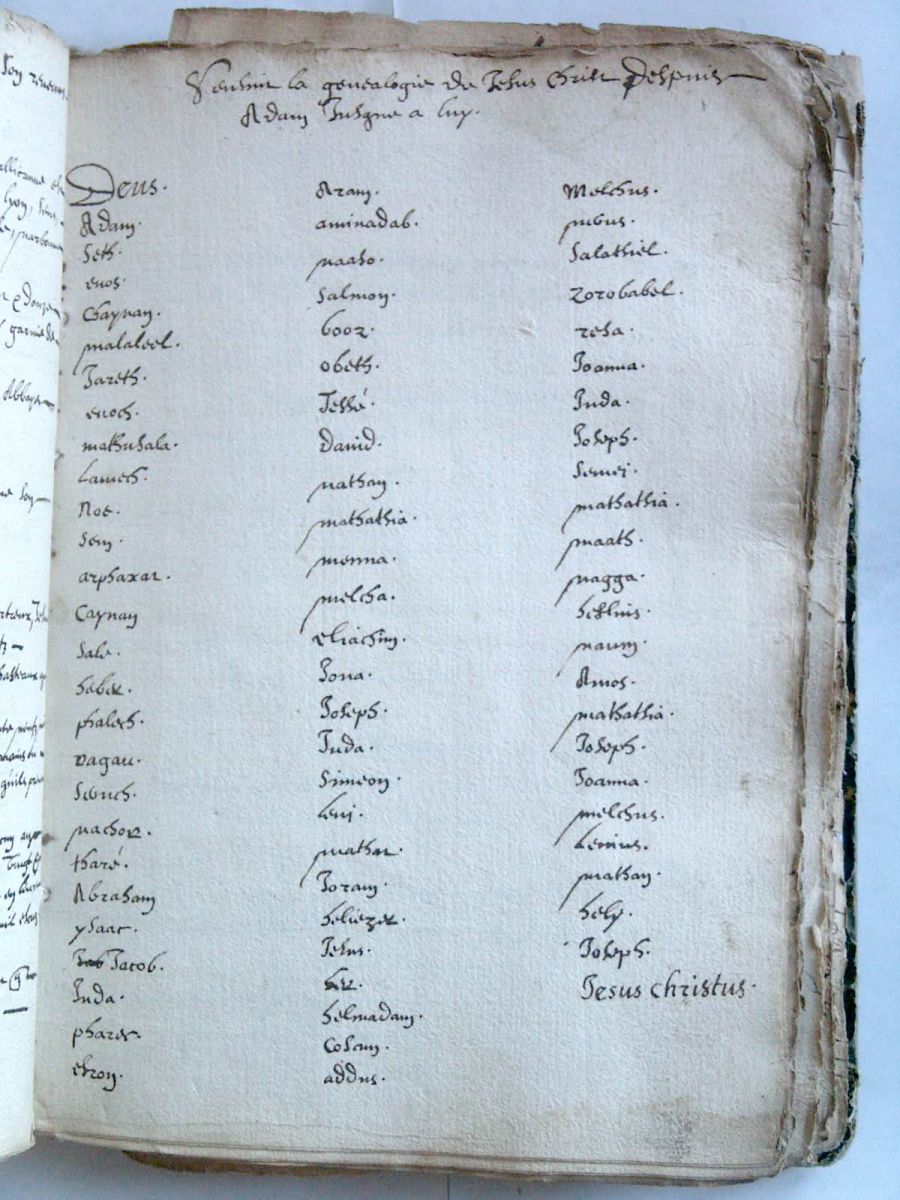 S'ensuit la genealogie de Jesus Christ Despuis
Adam Jusque a luy.
Deus.
Adam.
Seth.
enos.
Chaynan.
malaleel.
Jareth.
enoch.
mathusala.
Lamech.
Noe.
Sem.
arphaxat.
Caynan
Sale.
heber.
phalech.
ragau.
Seruch.
nachor.
tharé.
Abraham
ysaac.
Jacob.
Juda.
phares.
esron.
Aram.
aminadab.
naaso.
Salmon.
booz.
obeth.
Jessé.
david.
nathan.
mathathia.
menna.
melcha.
eliachim.
Jona.
Joseph.
Juda.
Simeon.
levi.
mathat.
Joram.
heliezer.
Jesus.
her.
helmadam.
Cosam.
addus.
Melchus.
nerus.
Salathiel.
zorobabel.
resa.
Joanna.
Juda.
Joseph.
Semei.
mathathia.
maath.
nagga.
heslius.
naum.
Amos.
mathathia.
Joseph.
Joanna.
melchus.
Levius.
mathan.
hely.
Joseph.
Jesus christus.